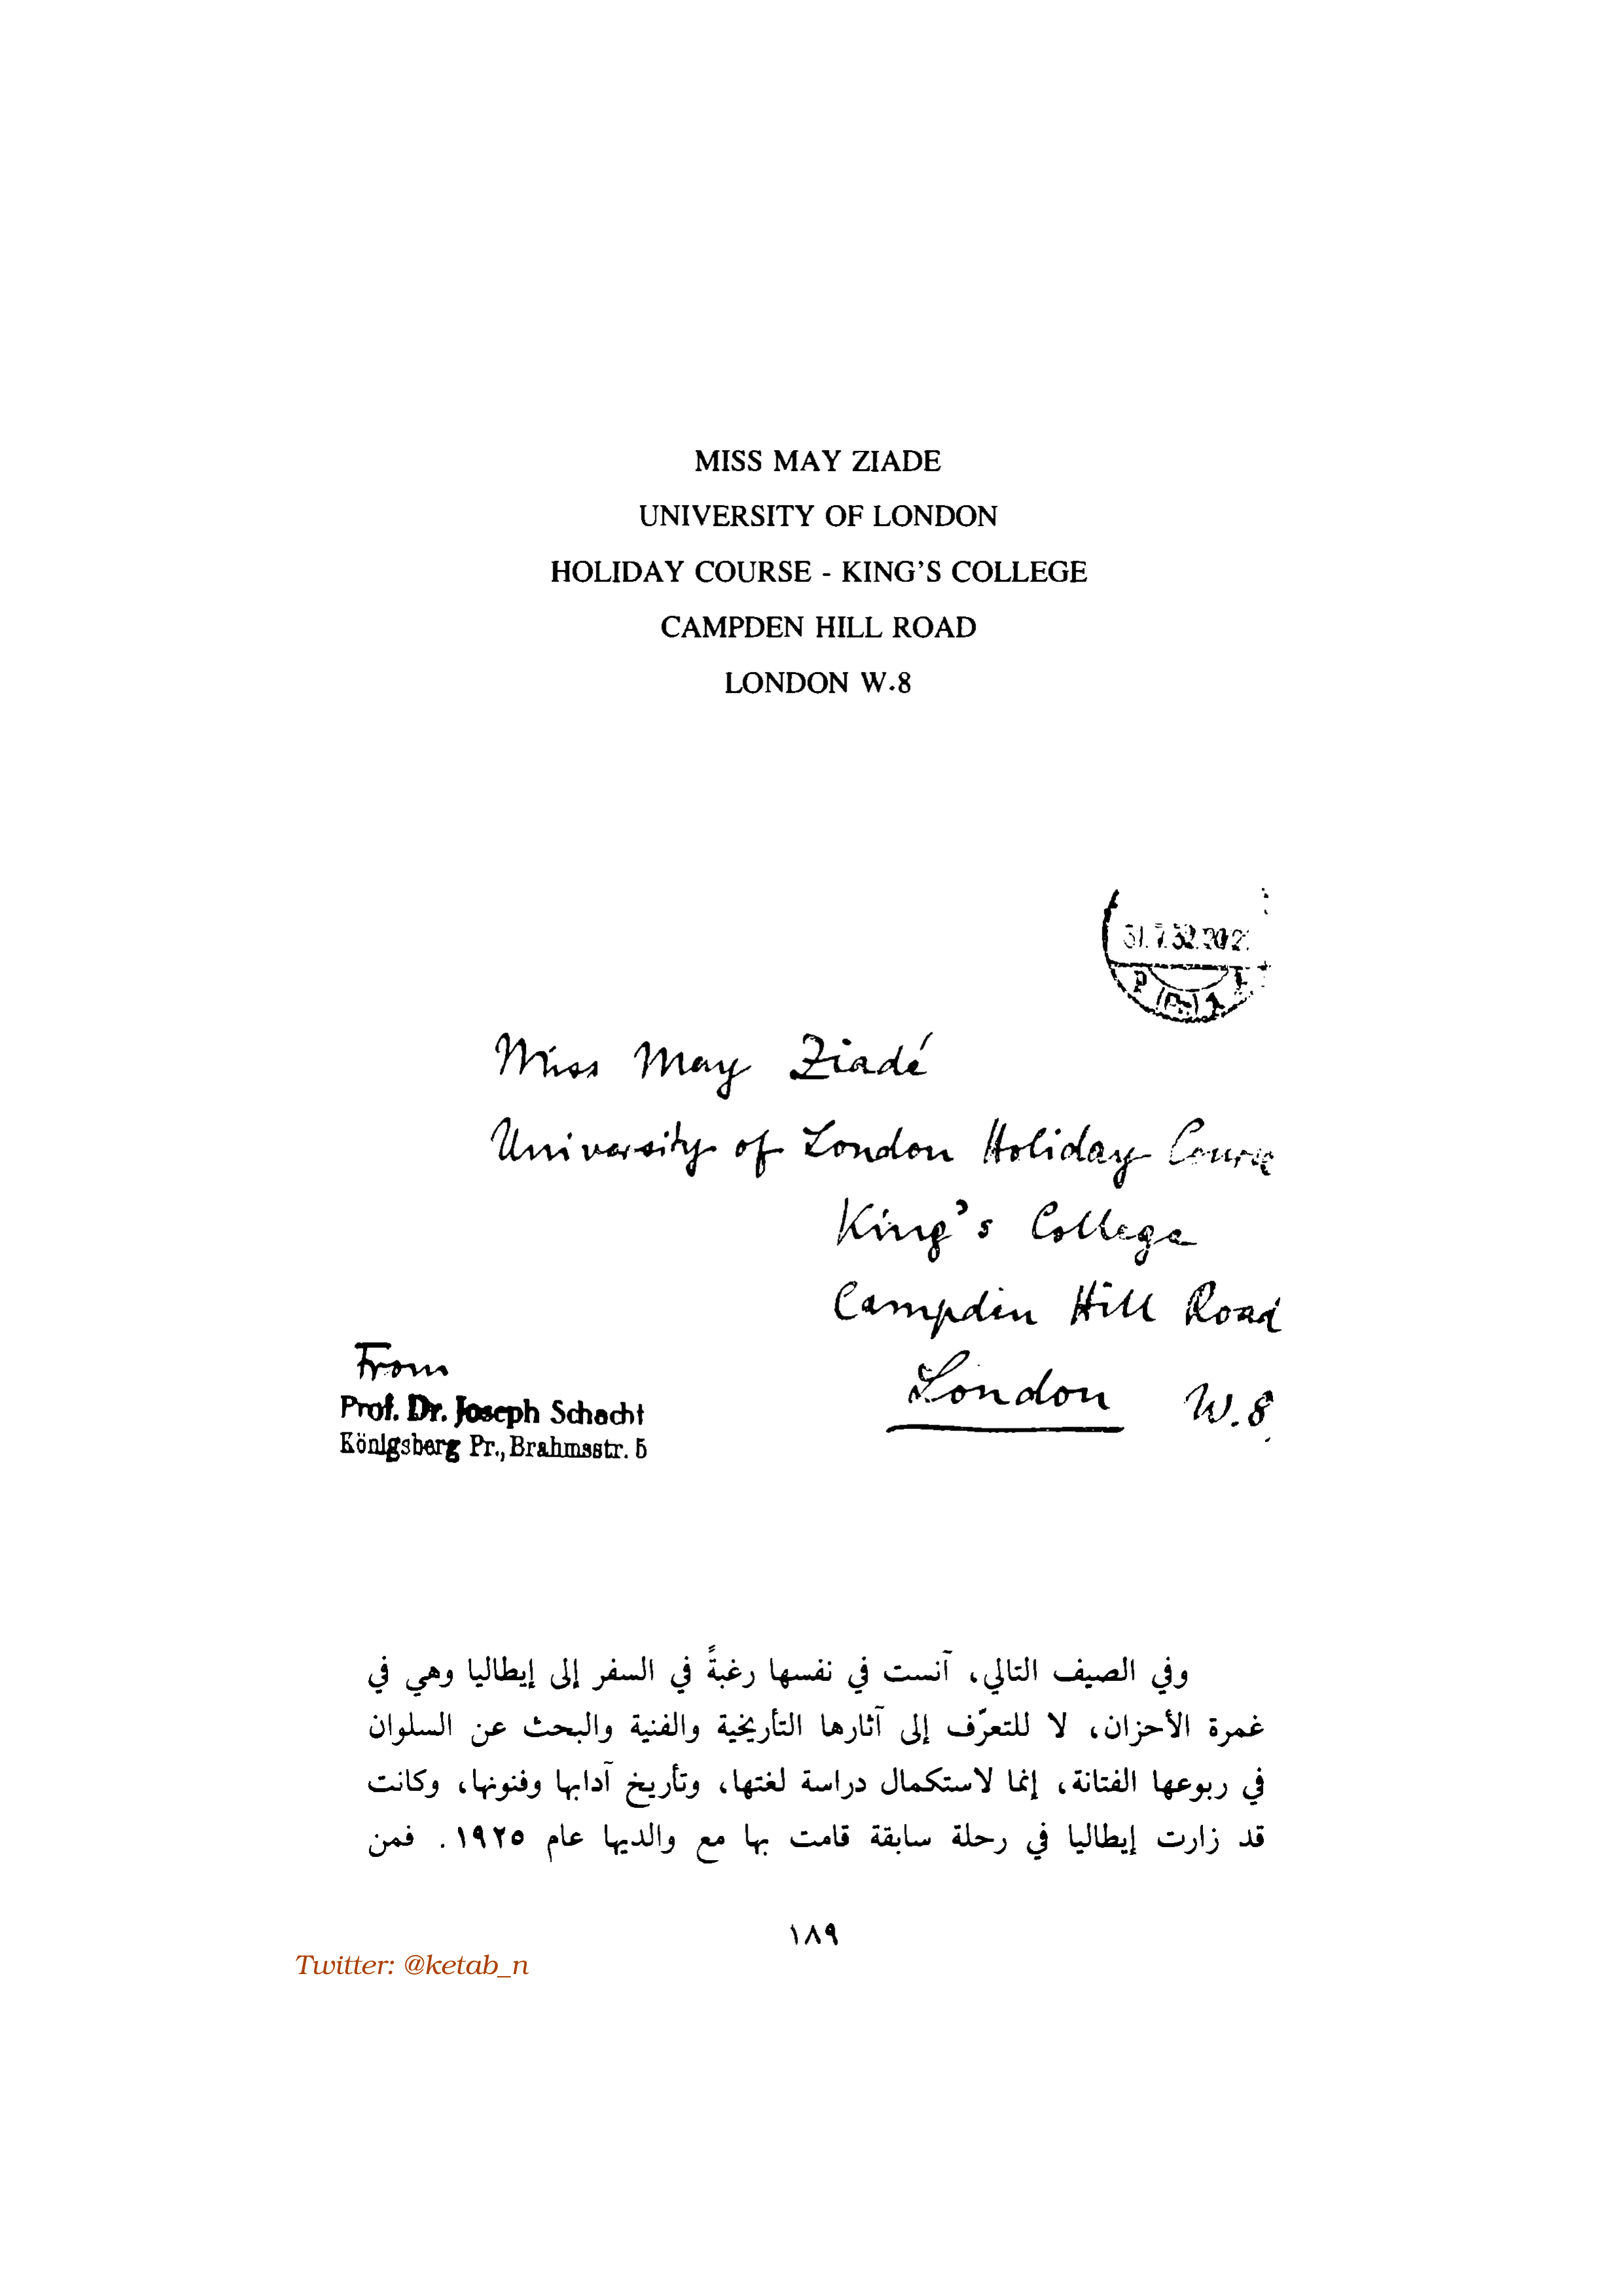 MISS MAY ZIADE
UNIVERSITY OF LONDON
HOLIDAY COURSE - KING'S COLLEGE
CAMPDEN HILL ROAD
LONDON W.8
31.7.32.20
Miss May Ziadé
University of London Holiday Course
King's College
Campden Hill Road
London W.8
From
Prof. Dr. Joseph Schacht
Königsberg Pr., Brahmsstr. 5
وفي الصيف التالي، آنست في نفسها رغبةً في السفر إلى إيطاليا وهي في
غمرة الأحزان، لا للتعرّف إلى آثارها التأريخية والفنية والبحث عن السلوان
في ربوعها الفتانة، إنما لاستكمال دراسة لغتها، وتأريخ آدابها وفنونها، وكانت
قد زارت إيطاليا في رحلة سابقة قامت بها مع والديها عام ١٩٢٥. فمن
١٨٩
Twitter: @ketab_n